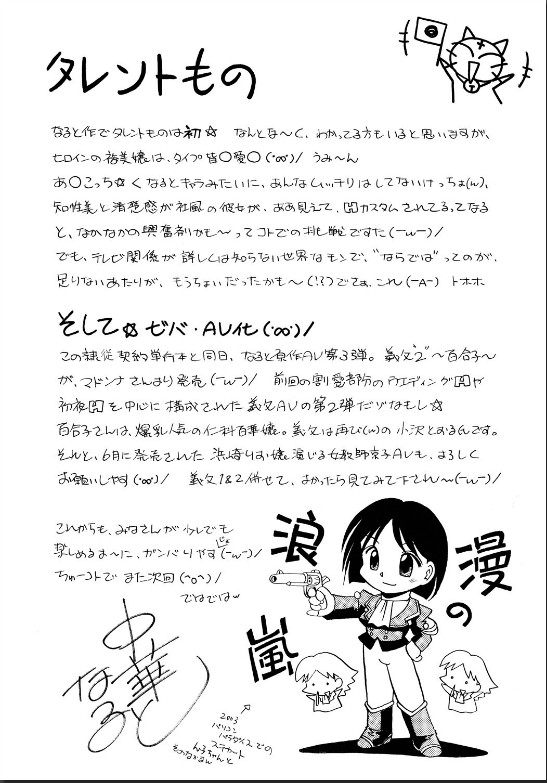 タレントもの
なると作でタレントものは初☆ なんとな〜く、わかってる方もいると思いますが、
ヒロインの裕美嬢は、タイプ皆〇愛〇(･∞･)/ うみ〜ん
あ〇こっち☆くなるとキャラみたいに、あんなムッチリはしてないけっちょ(w)、
知性美と清楚感が社風の彼女が、ああ見えて、〇カスタムされてるってなる
と、なかなかの興奮剤かも〜ってコトでの挑戦ですた(ーwー)/
でも、テレビ関係が詳しくは知らない世界なモンで、“ならでは”ってのが、
足りないあたりが、もうちょいだったかも〜(!?)でてa、これ(ーAー) トホホ
そして☆ ゼバ・AV化(･∞･)/
この隷従契約単行本と同日、なると原作AV第3弾。義父“2”〜百合子〜
が、マドンナさんより発売(ーwー)/ 前回の割愛箇所のウエディング〇や
初夜〇を中心に構成された義父AVの第2弾だゾなもし☆
百合子さんは、爆乳人気の仁科百華嬢。義父は再び(w)の小沢とおるんです。
それと、6月に発売された浜崎りお嬢演じる女教師京子AVも、よろしく
お願いしやす(･∞･)/ 義父1&2併せて、よかったら見てみて下され〜(ーwー)/
これからも、みなさんが少しでも
楽しめるよーに、ガンバリやす(ーwー)/
ちゅーコトでまた次回(^o^)/
でわでわw
浪漫の嵐
中華
なると
2003